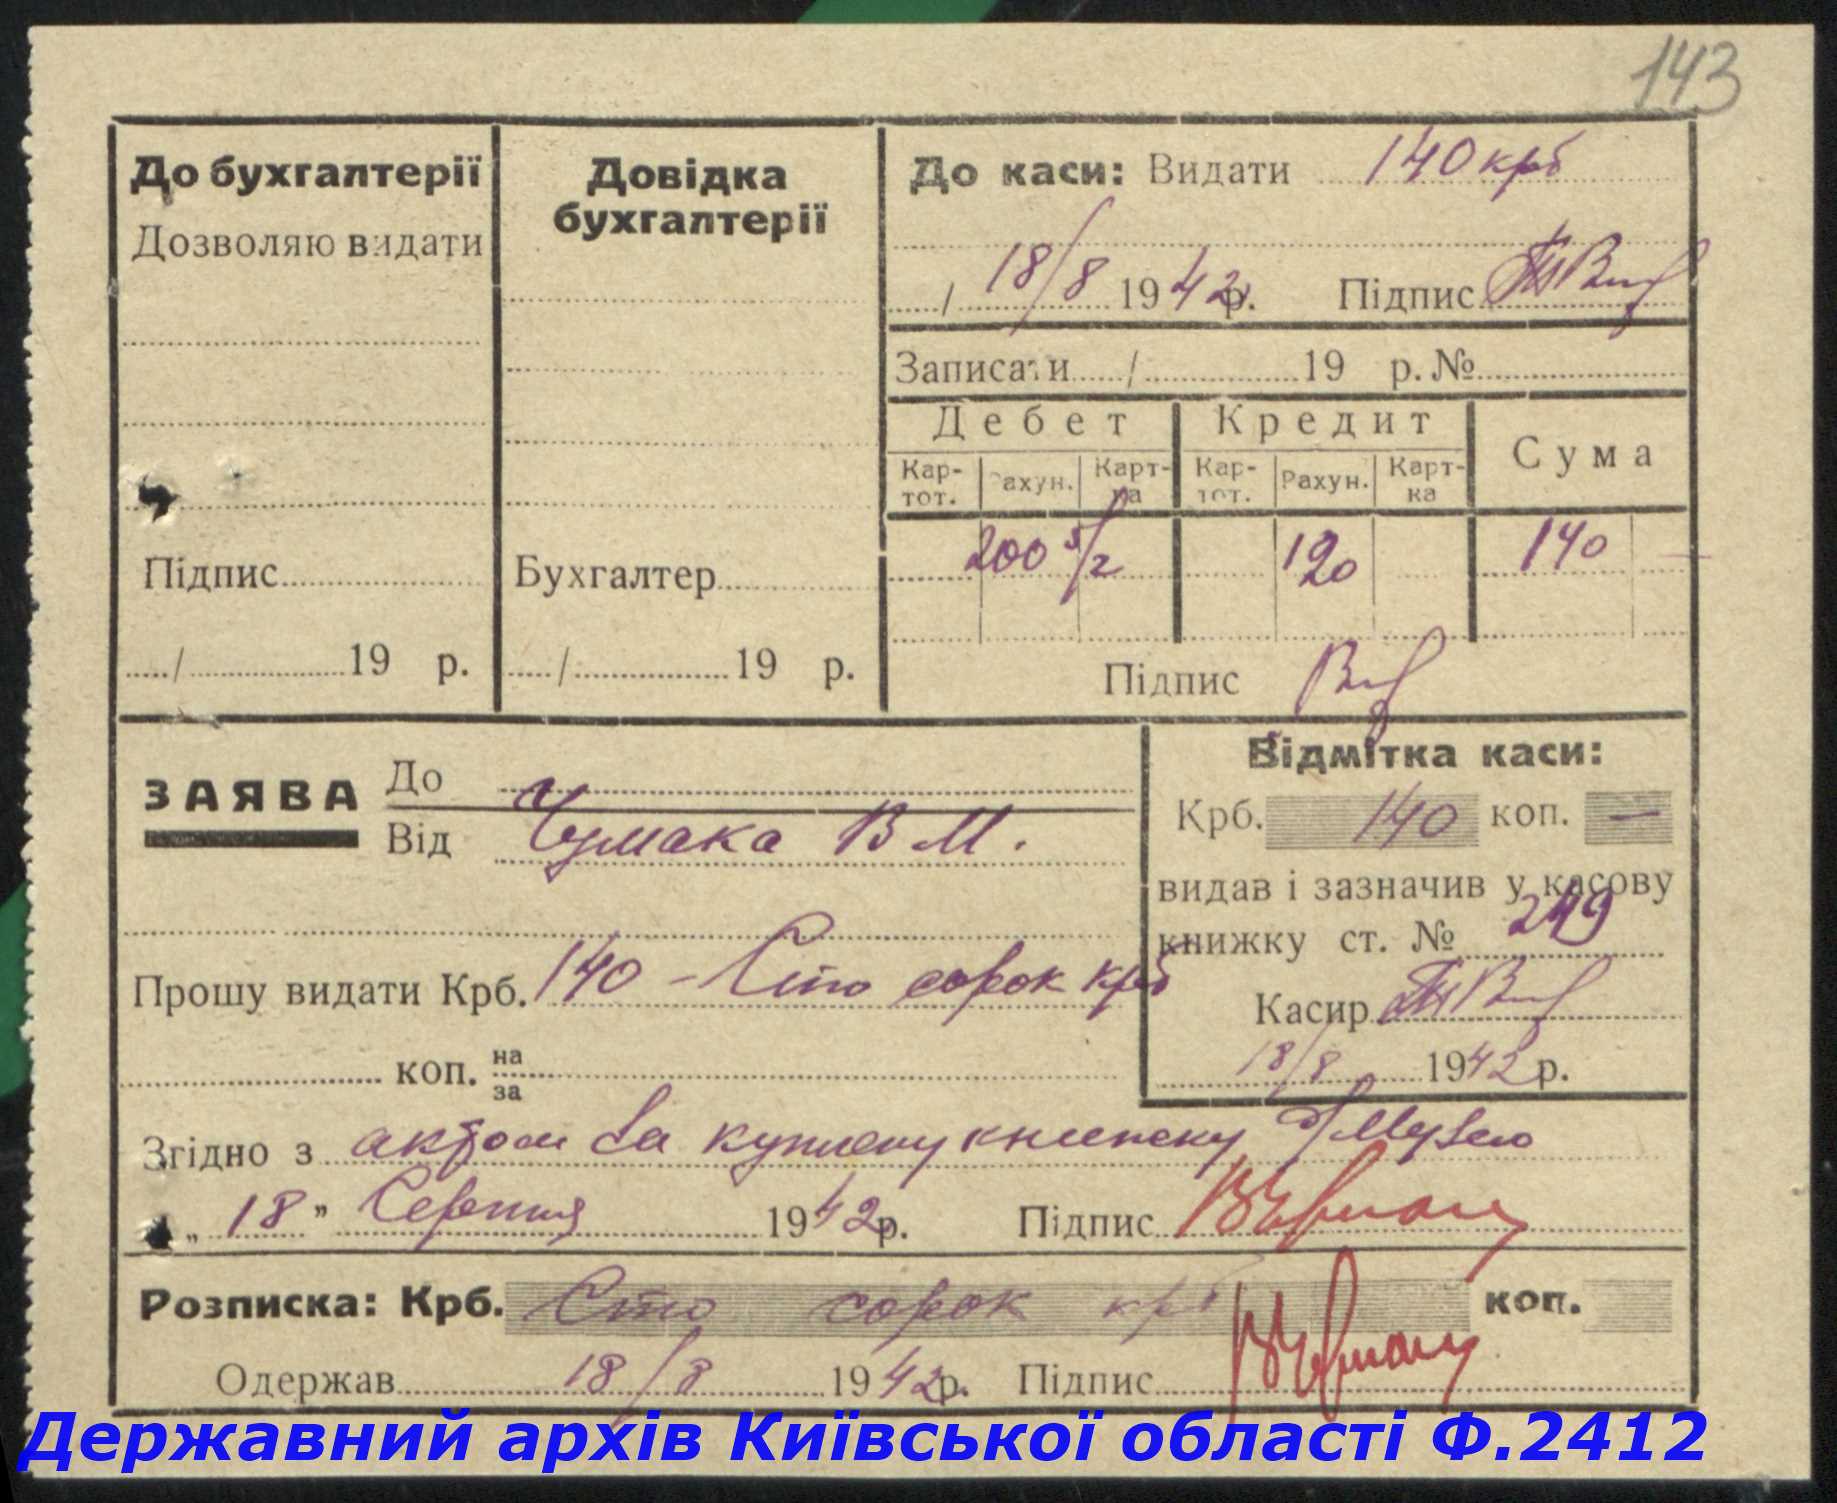 143
До бухгалтерії
Дозволяю видати
Підпис
/ 19 р.
Довідка
бухгалтерії
Бухгалтер
/ 19 р.
До каси: Видати 140 крб
/ 18/8 1942р. Підпис
Записати / 19 р. №
Дебет Кредит Сума
Кар-тот. Рахун. Карт-ка Кар-тот. Рахун. Карт-ка
200 5/2 120 140
Підпис
ЗАЯВА До
Від Чумака В М.
Прошу видати Крб. 140 - Сто сорок крб
коп. на
за
Відмітка каси:
Крб. 140 коп. —
видав і зазначив у касову
книжку ст. № 249
Касир
18/8 1942р.
Згідно з актом за куплену книжку д/Музею
„ 18 " Серпня 1942р. Підпис
Розписка: Крб. Сто сорок крб коп.
Одержав 18/8 1942р. Підпис
Державний архів Київської області Ф.2412